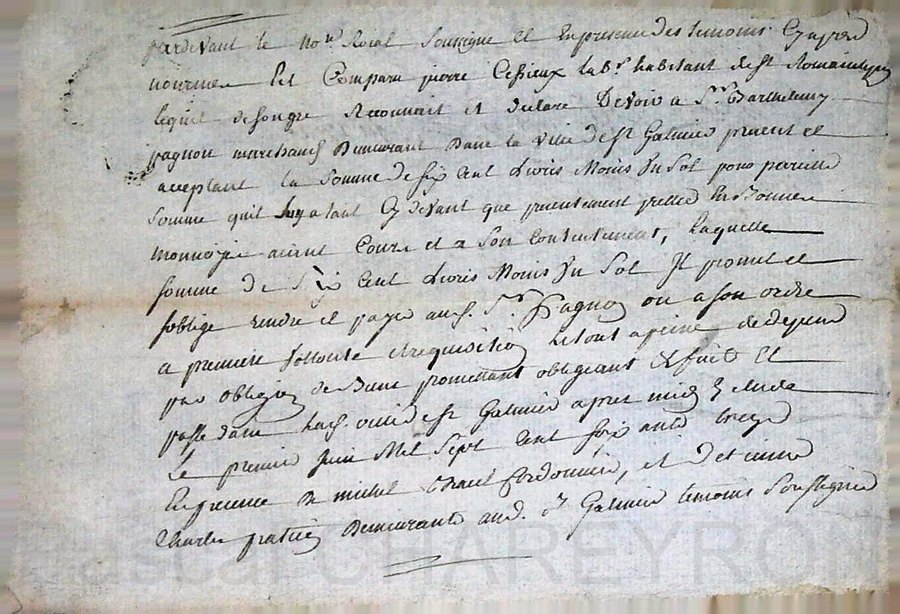 pardevant le no.re Royal Soussigné et En presence des temoins Cy apres
nommes fut Comparu pierre Cessieux lab.r habitant de St Romain
lequel de son gre Reconnait et declare Devoir a S.r Barthelemy
pagnon marchand Demeurant Dans la ville de St Galmier present et
acceptant la Somme de six Cent Livres Moins Un Sol pour pareille
Somme quil luy a tant Cy devant que presentement prettée En Bonne
monnoye aiant Cours et a Son Contentement, Laquelle
Somme de Six Cent Livres Moins Un Sol Il promet et
soblige rendre et payer aud. S.r Pagnon ou a son ordre
a premiere vollonté et requisition le tout a peine de depens
par obligon de Biens promettant obligeant & fait et
passé dans lad. ville de St Galmier apres midy
Le premier Juin Mil Sept Cent soixante treize
En presence de michel Cordonnier, et d'etienne
Charles Demeurants aud. St Galmier temoins Soussignés
Pascal CHAREYRON